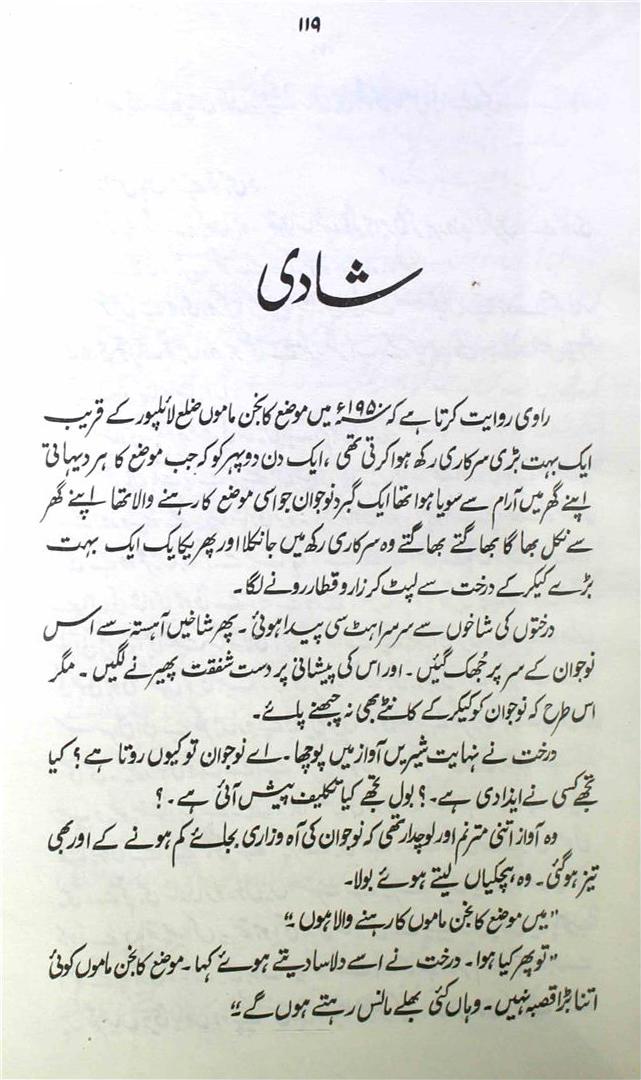 ۱۱۹
شادی
راوی روایت کرتا ہے کہ ۱۹۵۰ء میں موضع کانجن ماموں ضلع لائلپور کے قریب
ایک بہت بڑی سرکاری رکھ ہوا کرتی تھی ، ایک دن دوپہر کو کہ جب موضع کا ہر دیہاتی
اپنے گھر میں آرام سے سویا ہوا تھا ایک گبرد نوجوان جو اسی موضع کا رہنے والا تھا اپنے گھر
سے نکل بھاگا بھاگتے بھاگتے وہ سرکاری رکھ میں جا نکلا اور پھر یکایک ایک بہت
بڑے کیکر کے درخت سے لپٹ کر زار و قطار رونے لگا۔
درختوں کی شاخوں سے سرسراہٹ سی پیدا ہوئی ۔ پھر شاخیں آہستہ سے اس
نوجوان کے سر پر جُھک گئیں ۔ اور اس کی پیشانی پر دست شفقت پھیرنے لگیں ۔ مگر
اس طرح کہ نوجوان کو کیکر کے کانٹے بھی نہ چبھنے پائے۔
درخت نے نہایت شیریں آواز میں پوچھا ۔ اے نوجوان تو کیوں روتا ہے ؟ کیا
تجھے کسی نے ایذا دی ہے ۔ ؟ بول تجھے کیا تکلیف پیش آئی ہے ۔ ؟
وہ آواز اتنی مترنم اور لوچدار تھی کہ نوجوان کی آہ و زاری بجائے کم ہونے کے اور بھی
تیز ہوگئی ۔ وہ ہچکیاں لیتے ہوئے بولا۔
"میں موضع کانجن ماموں کا رہنے والا ہوں ۔"
"تو پھر کیا ہوا ۔ درخت نے اسے دلاسا دیتے ہوئے کہا ۔ موضع کانجن ماموں کوئی
اتنا بڑا قصبہ نہیں ۔ وہاں کئی بھلے مانس رہتے ہوں گے ۔"